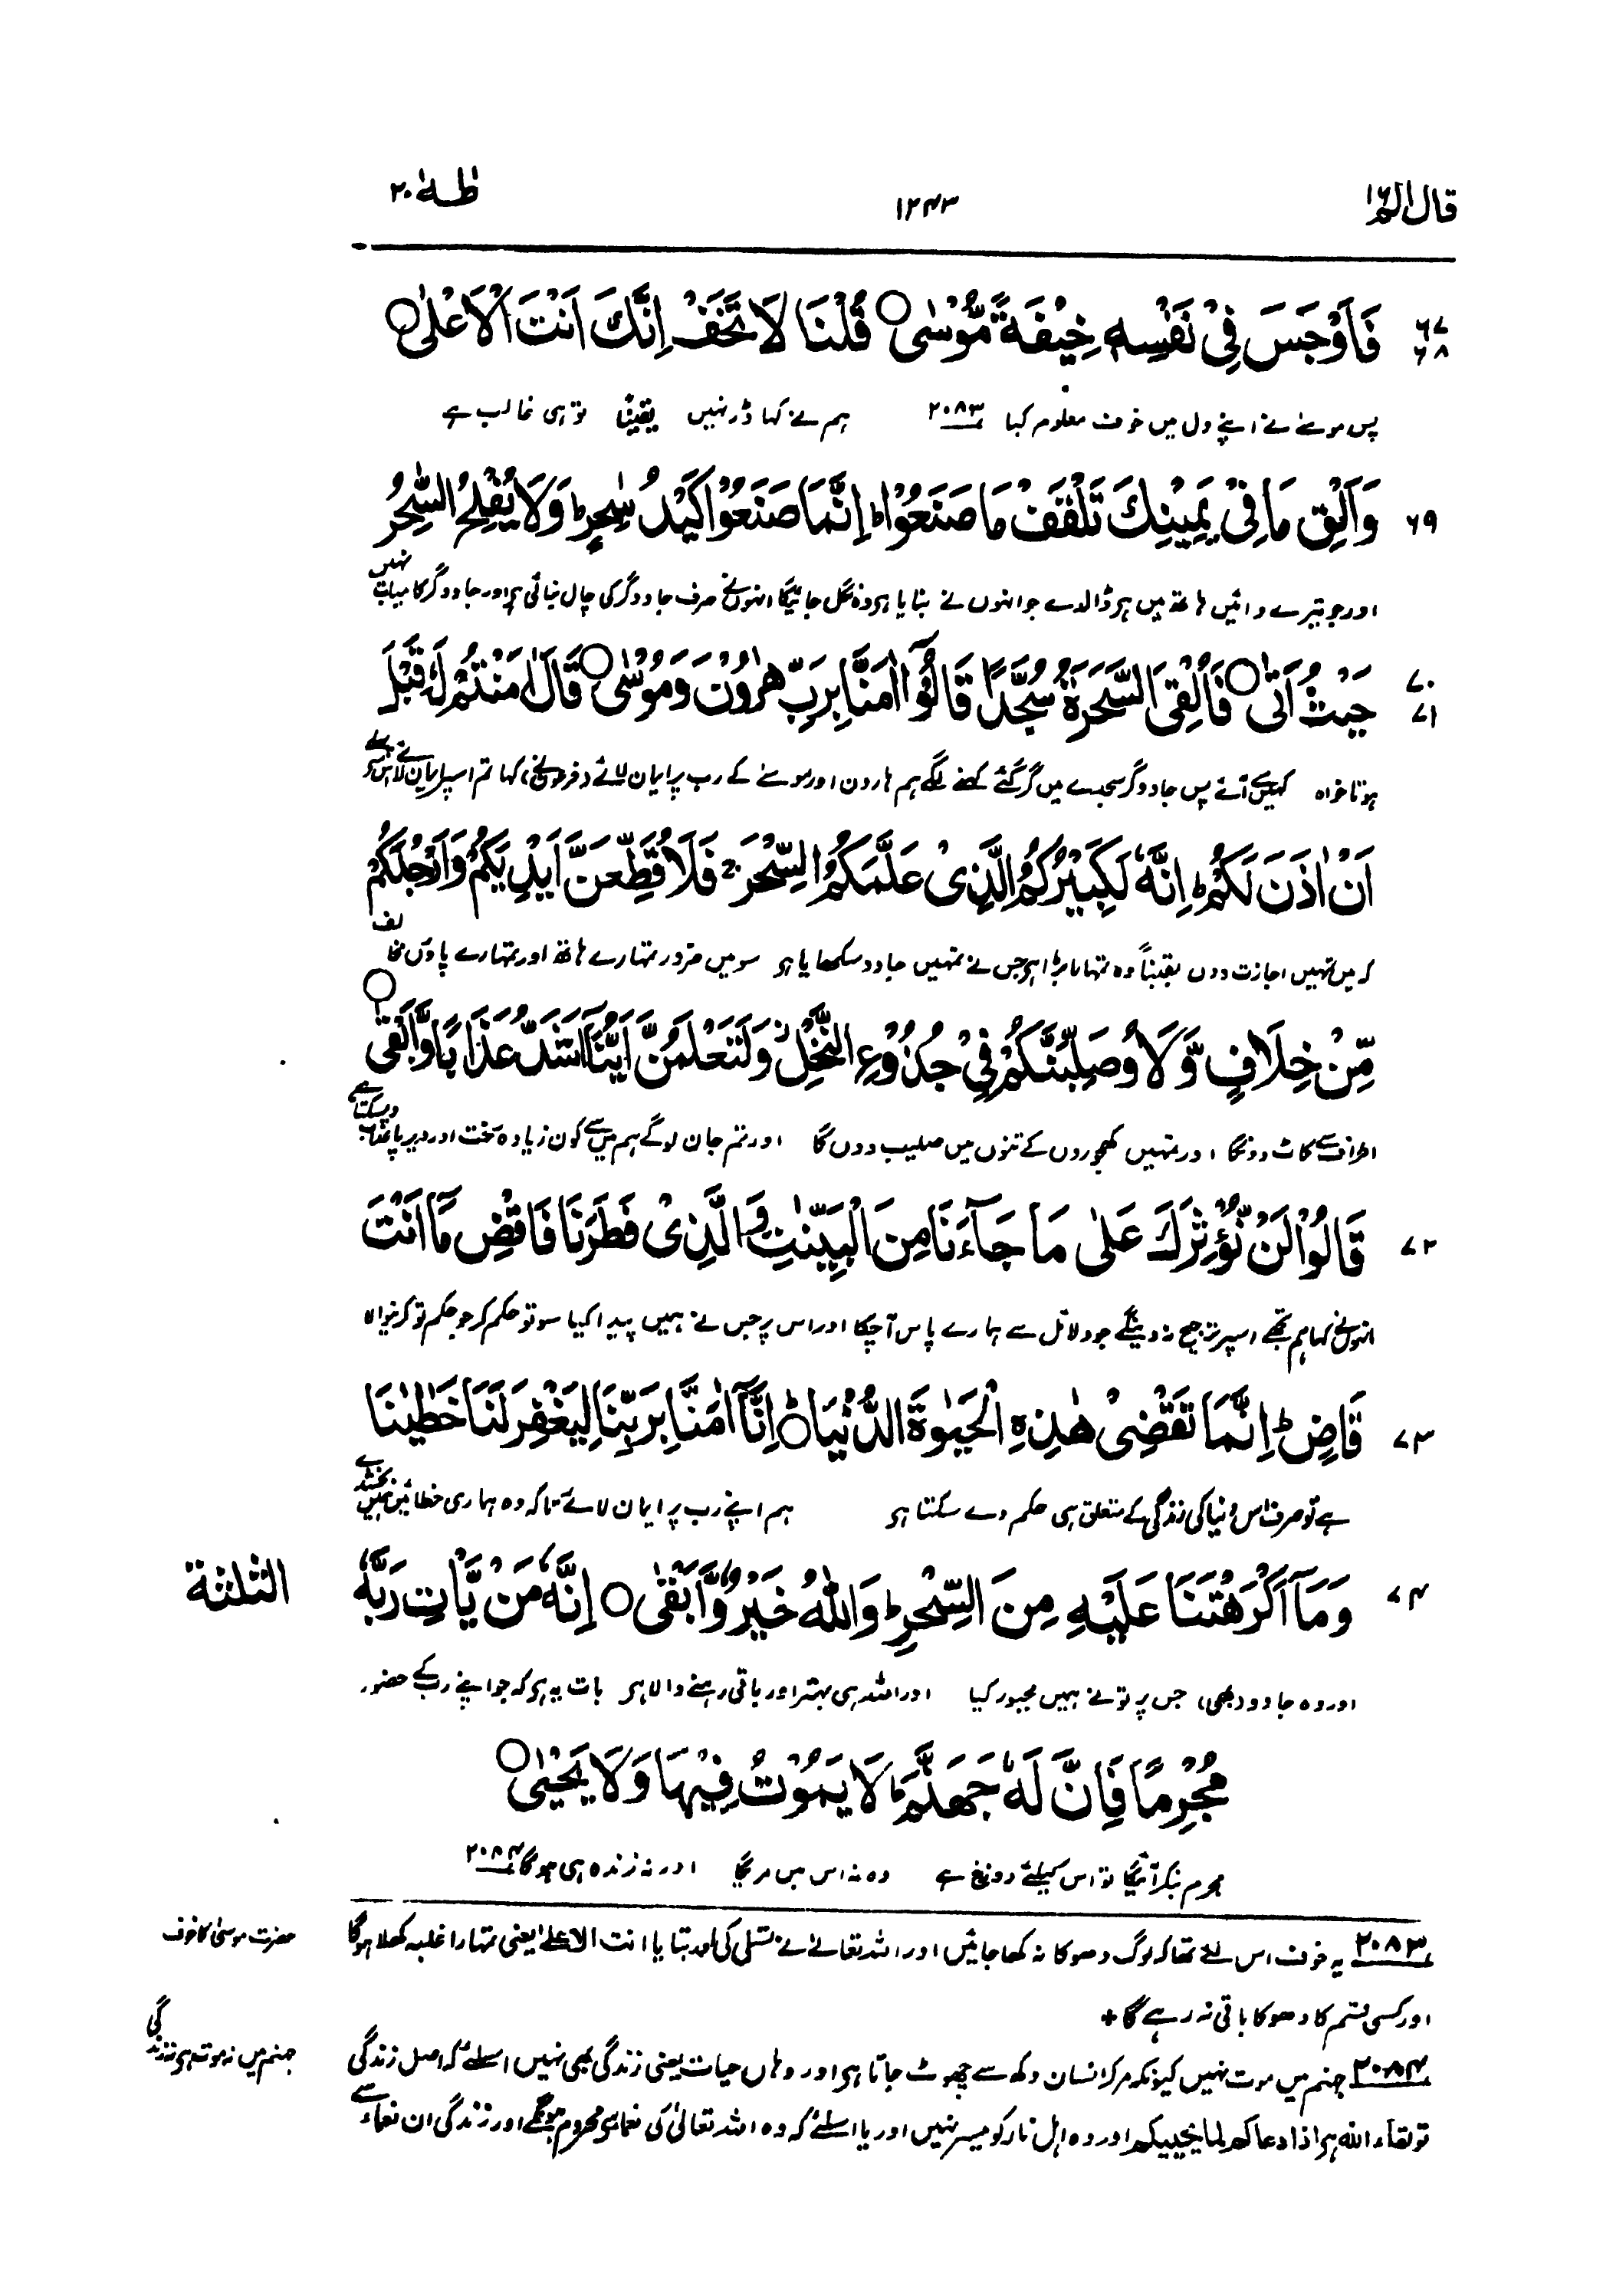 قال الم ۱۶ ۱۲۴۳ طٰہٰ ۲۰
۶۷ ۶۸ فَاَوْجَسَ فِیْ نَفْسِهٖ خِیْفَةً مُّوْسٰی ○ قُلْنَا لَا تَخَفْ اِنَّكَ اَنْتَ الْاَعْلٰی ○
پس موسےٰ نے اپنے دل میں خوف معلوم کیا ۲۰۸۳ ہم نے کہا ڈر نہیں یقیناً تو ہی غالب ہے
۶۹ وَاَلْقِ مَا فِیْ یَمِیْنِكَ تَلْقَفْ مَا صَنَعُوْا ؕ اِنَّمَا صَنَعُوْا كَیْدُ سٰحِرٍ ؕ وَلَا یُفْلِحُ السّٰحِرُ
اور جو تیرے دائیں ہاتھ میں ہے ڈالدے جو انہوں نے بنایا ہے وہ نگل جائیگا انہوں نے صرف جادوگر کی چال بنائی ہے اور جادوگر کامیاب نہیں
۷۰ ۷۱ حَیْثُ اَتٰی ○ فَاُلْقِیَ السَّحَرَةُ سُجَّدًا قَالُوْۤا اٰمَنَّا بِرَبِّ هٰرُوْنَ وَمُوْسٰی ○ قَالَ اٰمَنْتُمْ لَهٗ قَبْلَ
ہوتا خواہ کہیں سے آئے پس جادوگر سجدے میں گر گئے کہنے لگے ہم ہارون اور موسےٰ کے رب پر ایمان لائے (فرعون نے) کہا تم اس پر ایمان لائے اس سے پہلے
اَنْ اٰذَنَ لَكُمْ ؕ اِنَّهٗ لَكَبِیْرُكُمُ الَّذِیْ عَلَّمَكُمُ السِّحْرَ ۚ فَلَاُقَطِّعَنَّ اَیْدِیَكُمْ وَاَرْجُلَكُمْ
کہ میں تمہیں اجازت دوں یقیناً وہ تمہارا بڑا ہے جس نے تمہیں جادو سکھایا ہے سو میں ضرور تمہارے ہاتھ اور تمہارے پاؤں مخالف
مِّنْ خِلَافٍ وَّلَاُوصَلِّبَنَّكُمْ فِیْ جُذُوْعِ النَّخْلِ ۫ وَلَتَعْلَمُنَّ اَیُّنَاۤ اَشَدُّ عَذَابًا وَّاَبْقٰی ○
اطراف سے کاٹ دونگا اور تمہیں کھجوروں کے تنوں میں صلیب دوں گا اور تم جان لوگے ہم میں سے کون زیادہ سخت اور دیرپا عذاب دے سکتا ہے
۷۲ قَالُوْا لَنْ نُّؤْثِرَكَ عَلٰی مَا جَآءَنَا مِنَ الْبَیِّنٰتِ وَالَّذِیْ فَطَرَنَا فَاقْضِ مَاۤ اَنْتَ
انہوں نے کہا ہم تجھے اسپر ترجیح نہ دینگے جو دلائل سے ہمارے پاس آ چکا اور اس پر جس نے ہمیں پیدا کیا سو تو حکم کر جو حکم تو کرنیوالا
۷۳ قَاضٍ ؕ اِنَّمَا تَقْضِیْ هٰذِهِ الْحَیٰوةَ الدُّنْیَا ○ؕ اِنَّاۤ اٰمَنَّا بِرَبِّنَا لِیَغْفِرَ لَنَا خَطٰیٰنَا
ہے تو صرف اس دنیا کی زندگی کے متعلق ہی حکم دے سکتا ہے ہم اپنے رب پر ایمان لائے تاکہ وہ ہماری خطائیں ہمیں بخشدے
۷۴ وَمَاۤ اَكْرَهْتَنَا عَلَیْهِ مِنَ السِّحْرِ ؕ وَاللّٰهُ خَیْرٌ وَّاَبْقٰی ○ اِنَّهٗ مَنْ یَّاْتِ رَبَّهٗ الثلثة
اور وہ جادو (بھی) جس پر تو نے ہمیں مجبور کیا اور اللہ ہی بہتر اور باقی رہنے والا ہے بات یہ ہے کہ جو اپنے رب کے حضور
مُجْرِمًا فَاِنَّ لَهٗ جَهَنَّمَ ؕ لَا یَمُوْتُ فِیْهَا وَلَا یَحْیٰی ○
مجرم بنکر آئیگا تو اس کیلئے دوزخ ہے وہ نہ اس میں مریگا اور نہ زندہ ہی ہوگا ۲۰۸۴
۲۰۸۳ یہ خوف اس لئے تھا کہ لوگ دھوکا نہ کھا جائیں اور اللہ تعالےٰ نے تسلی کی اور بتایا انت الاعلےٰ یعنی تمہارا غلبہ کھلا ہوگا حضرت موسیٰ کا خوف
اور کسی قسم کا دھوکا باقی نہ رہے گا +
۲۰۸۴ جہنم میں موت نہیں کیونکہ مر کر انسان دکھ سے چھوٹ جاتا ہے اور وہاں حیات یعنی زندگی بھی نہیں اسلئے کہ اصل زندگی جہنم میں نہ موت ہے نہ زندگی
تو لقاء اللہ ہے اذا دعاکم لما یحییکم اور وہ اہل نار کو میسر نہیں اور یا اسلئے کہ وہ اللہ تعالیٰ کی نعما سے محروم ہونگے اور زندگی ان نعماء سے